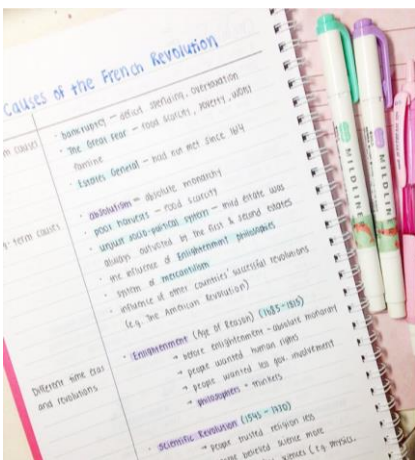 Causes of the French Revolution
causes
· bankruptcy – deficit spending, overtaxation
· The Great Fear – food scarcity, poverty,
famine
· Estates General – had not met since 1614
-term causes
· absolutism – absolute monarchy
· poor harvests – food scarcity
· unjust socio-political system – third estate was
always outvoted by the first & second estates
· the influence of Enlightenment philosophies
· system of mercantilism
· influence of other countries' successful revolutions
(e.g. The American Revolution)
Different time eras
and revolutions
· Enlightenment (Age of Reason) (1685-1815)
→ before enlightenment – absolute monarchy
→ people wanted human rights
→ people wanted less gov. involvement
→ philosophers = thinkers
· Scientific Revolution (1543 -
→ people trusted religion less
believed science more
sciences (e.g. physics,
MILDLINER
MILDLINE